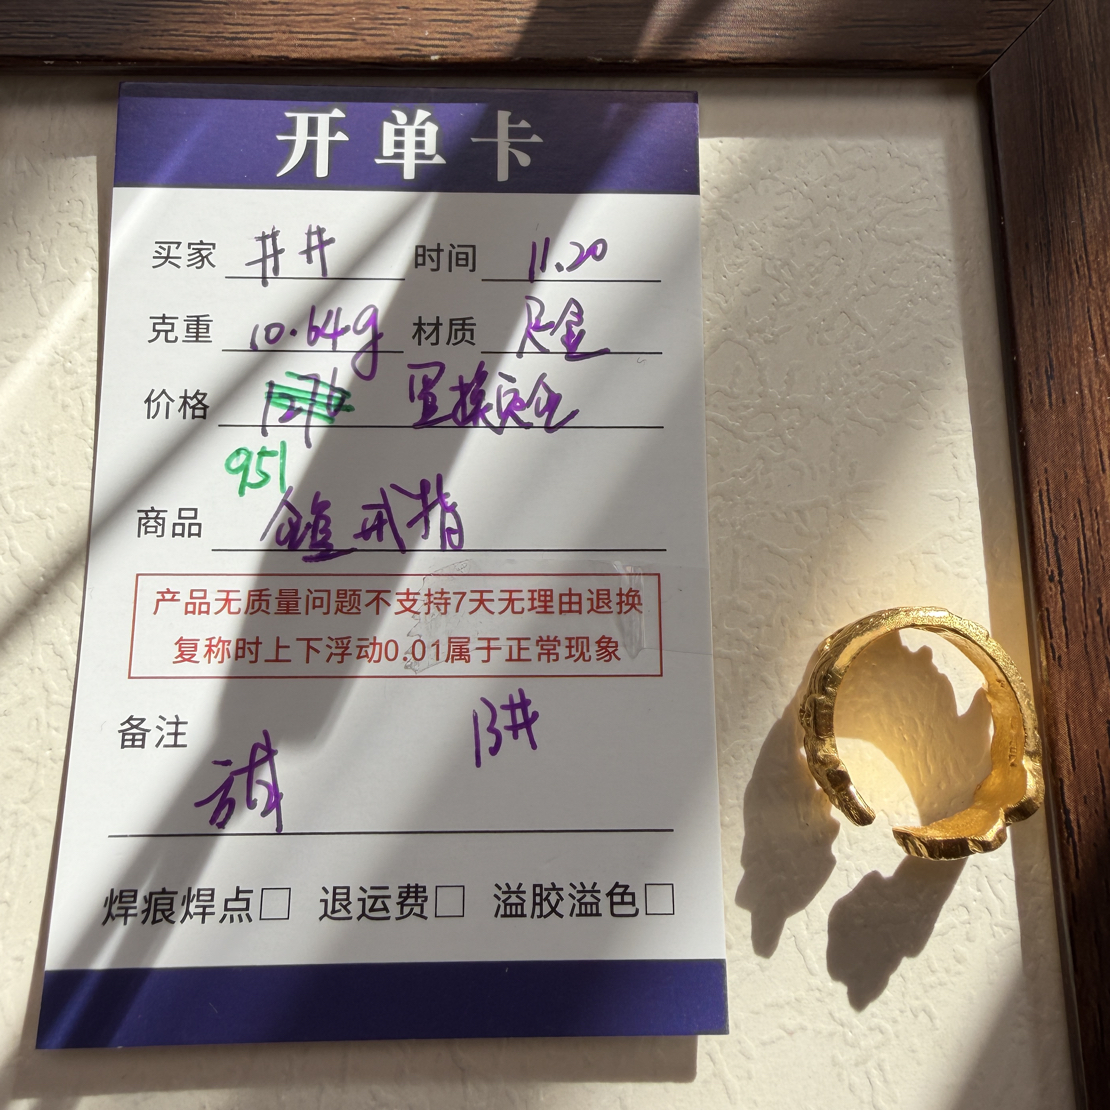 开单卡
买家 井井 时间 11.20
克重 10.64g 材质 足金
价格 1276 置换完全
951
商品 金锭戒指
产品无质量问题不支持7天无理由退换
复称时上下浮动0.01属于正常现象
备注
B井
焊痕焊点□ 退运费□ 溢胶溢色□